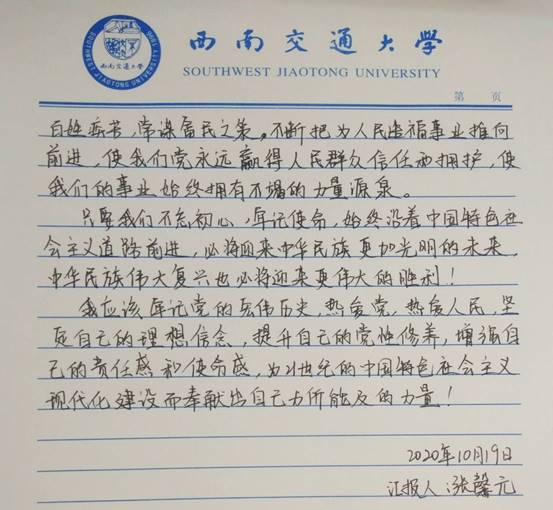 西南交通大学
SOUTHWEST JIAOTONG UNIVERSITY
第 页
百姓疾苦，常谋富民之策。不断把为人民造福事业推向
前进，使我们党永远赢得人民群众信任和拥护，使
我们的事业始终拥有不竭的力量源泉。
只要我们不忘初心、牢记使命，始终沿着中国特色社
会主义道路前进，必将迎来中华民族更加光明的未来，
中华民族伟大复兴也必将迎来更伟大的胜利！
我应该牢记党的宏伟历史，热爱党，热爱人民，坚
定自己的理想信念，提升自己的党性修养，增强自
己的责任感和使命感，为21世纪的中国特色社会主义
现代化建设而奉献出自己力所能及的力量！
2020年10月19日
汇报人：张馨元